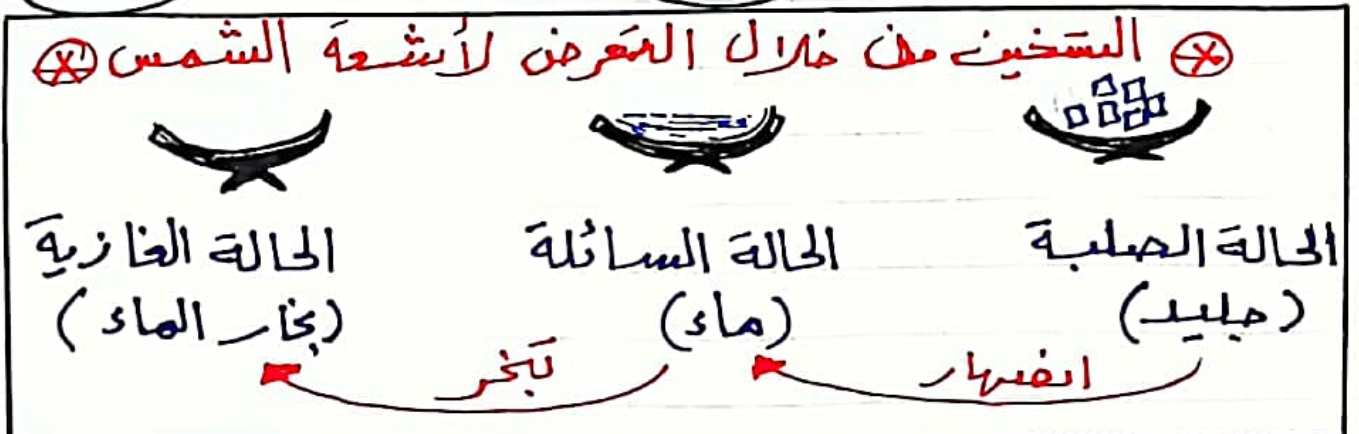 التسخين من خلال التعرض لأشعة الشمس
الحالة الصلبة الحالة السائلة الحالة الغازية
(جليد) (ماء) (بخار الماء)
انصهار تبخر